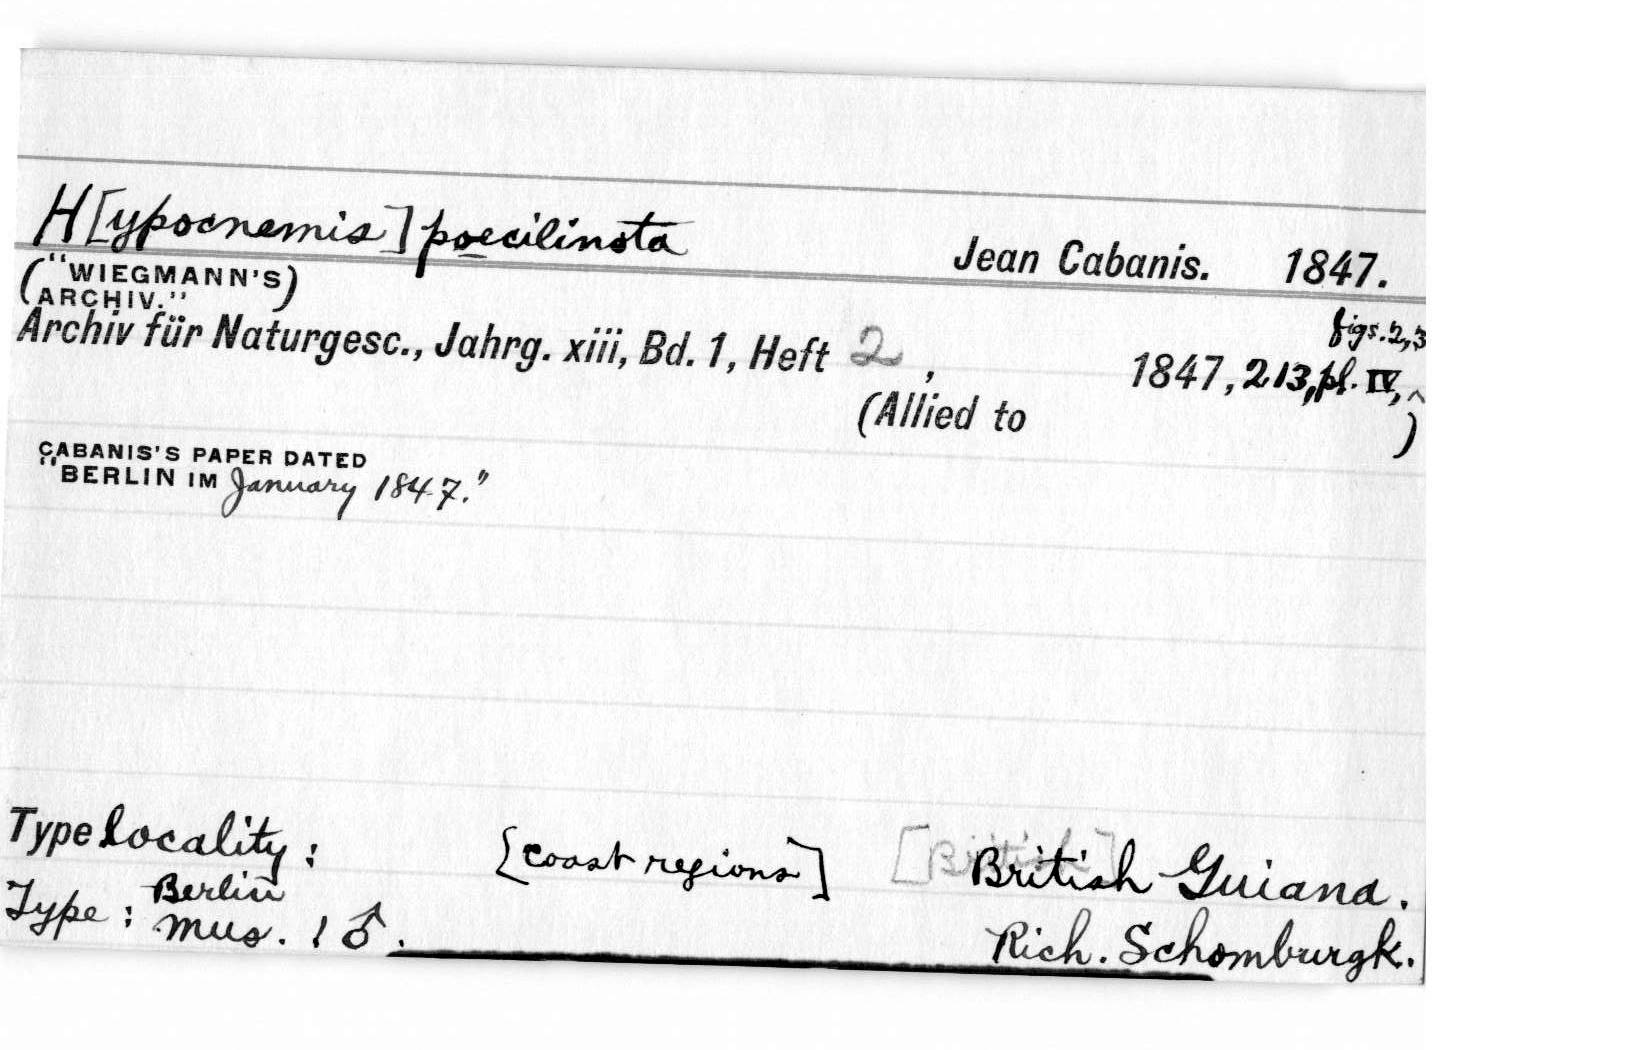 H[ypocnemis] poecilinota Jean Cabanis. 1847.
("WIEGMANN'S)
(ARCHIV."
Archiv für Naturgesc., Jahrg. xiii, Bd. 1, Heft 2, 1847, 213, pl. IV, ^ figs. 2, 3
(Allied to )
CABANIS'S PAPER DATED
"BERLIN IM January 1847."
Type locality: [coast regions] [British] British Guiana.
Type: Berlin Mus. 1 ♂. Rich. Schomburgk.